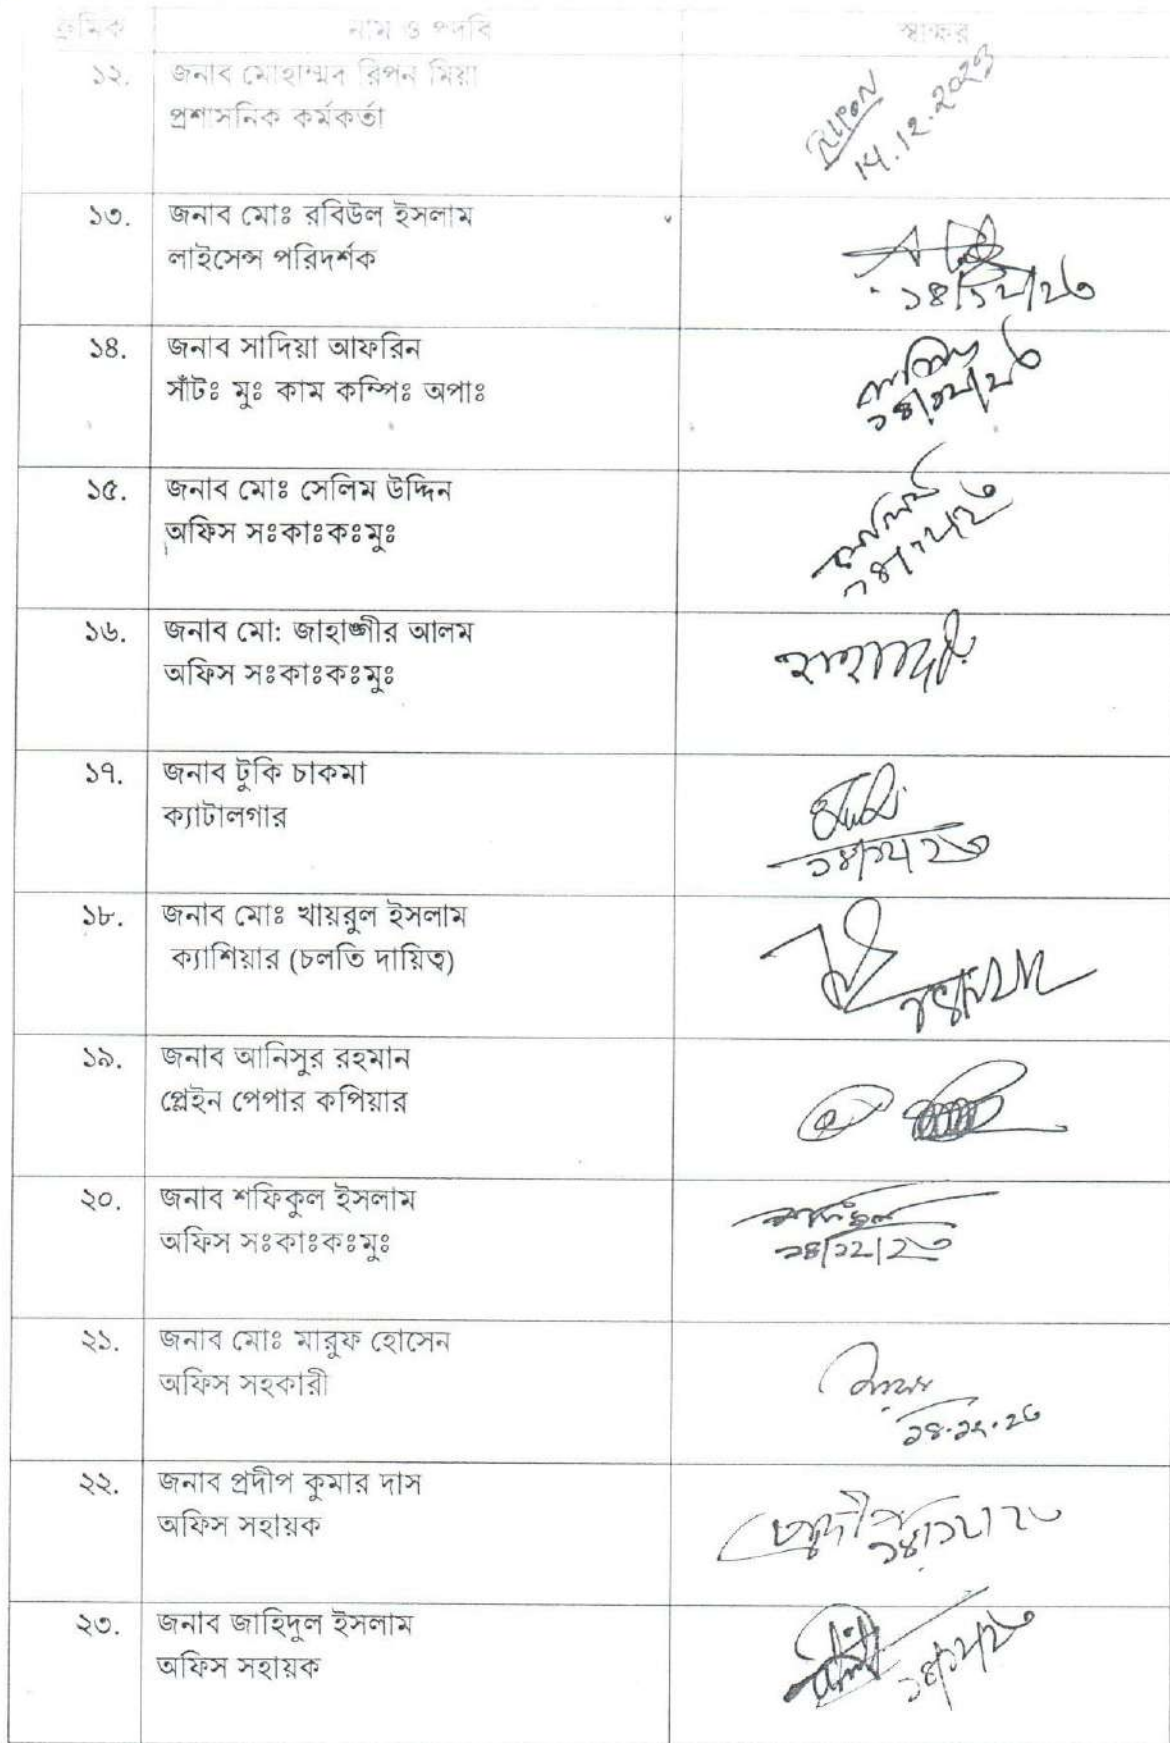 ক্রমিক নাম ও পদবি স্বাক্ষর
১২. জনাব মোহাম্মদ রিপন মিয়া
প্রশাসনিক কর্মকর্তা
রিপন
14.12.2023
১৩. জনাব মোঃ রবিউল ইসলাম
লাইসেন্স পরিদর্শক
১৪/১২/২৩
১৪. জনাব সাদিয়া আফরিন
সাঁটঃ মুঃ কাম কম্পিঃ অপাঃ
১৪/১২/২৩
১৫. জনাব মোঃ সেলিম উদ্দিন
অফিস সঃকাঃকঃমুঃ
সেলিম
১৪/১২/২৩
১৬. জনাব মো: জাহাঙ্গীর আলম
অফিস সঃকাঃকঃমুঃ
১৭. জনাব টুকি চাকমা
ক্যাটালগার
১৪/১২/২৩
১৮. জনাব মোঃ খায়রুল ইসলাম
ক্যাশিয়ার (চলতি দায়িত্ব)
১৯. জনাব আনিসুর রহমান
প্লেইন পেপার কপিয়ার
২০. জনাব শফিকুল ইসলাম
অফিস সঃকাঃকঃমুঃ
১৪/১২/২৩
২১. জনাব মোঃ মারুফ হোসেন
অফিস সহকারী
১৪.১২.২৩
২২. জনাব প্রদীপ কুমার দাস
অফিস সহায়ক
প্রদীপ
১৪/১২/২৩
২৩. জনাব জাহিদুল ইসলাম
অফিস সহায়ক
১৪/১২/২৩